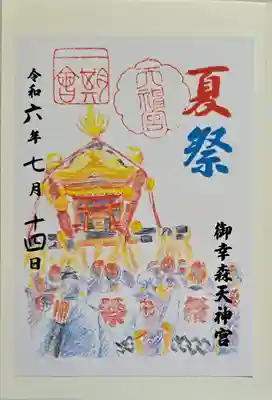 夏祭
御幸森天神宮
令和六年七月十四日
祭
祭